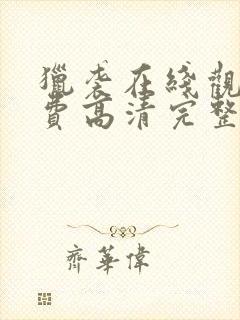 獵袭在綫觀
費高清完整
齊華偉